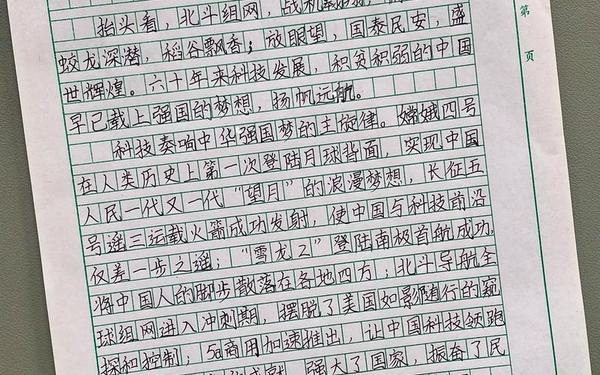 第 页
抬头看，北斗组网，战机
蛟龙深潜，稻谷飘香；放眼望，国泰民安，盛
世辉煌。六十年来科技发展，积贫积弱的中国
早已载上强国的梦想，扬帆远航。
科技奏响中华强国梦的主旋律。嫦娥四号
在人类历史上第一次登陆月球背面，实现中国
人民一代又一代“望月”的浪漫梦想，长征五
号遥三运载火箭成功发射，使中国与科技前沿
仅差一步之遥；“雪龙2”登陆南极首航成功，
将中国人的脚步散落在各地四方；北斗导航全
球组网进入冲刺期，摆脱了美国如影随行的窥
探和控制；5G商用加速推出，让中国科技领跑
成就，强大了国家，振奋了民